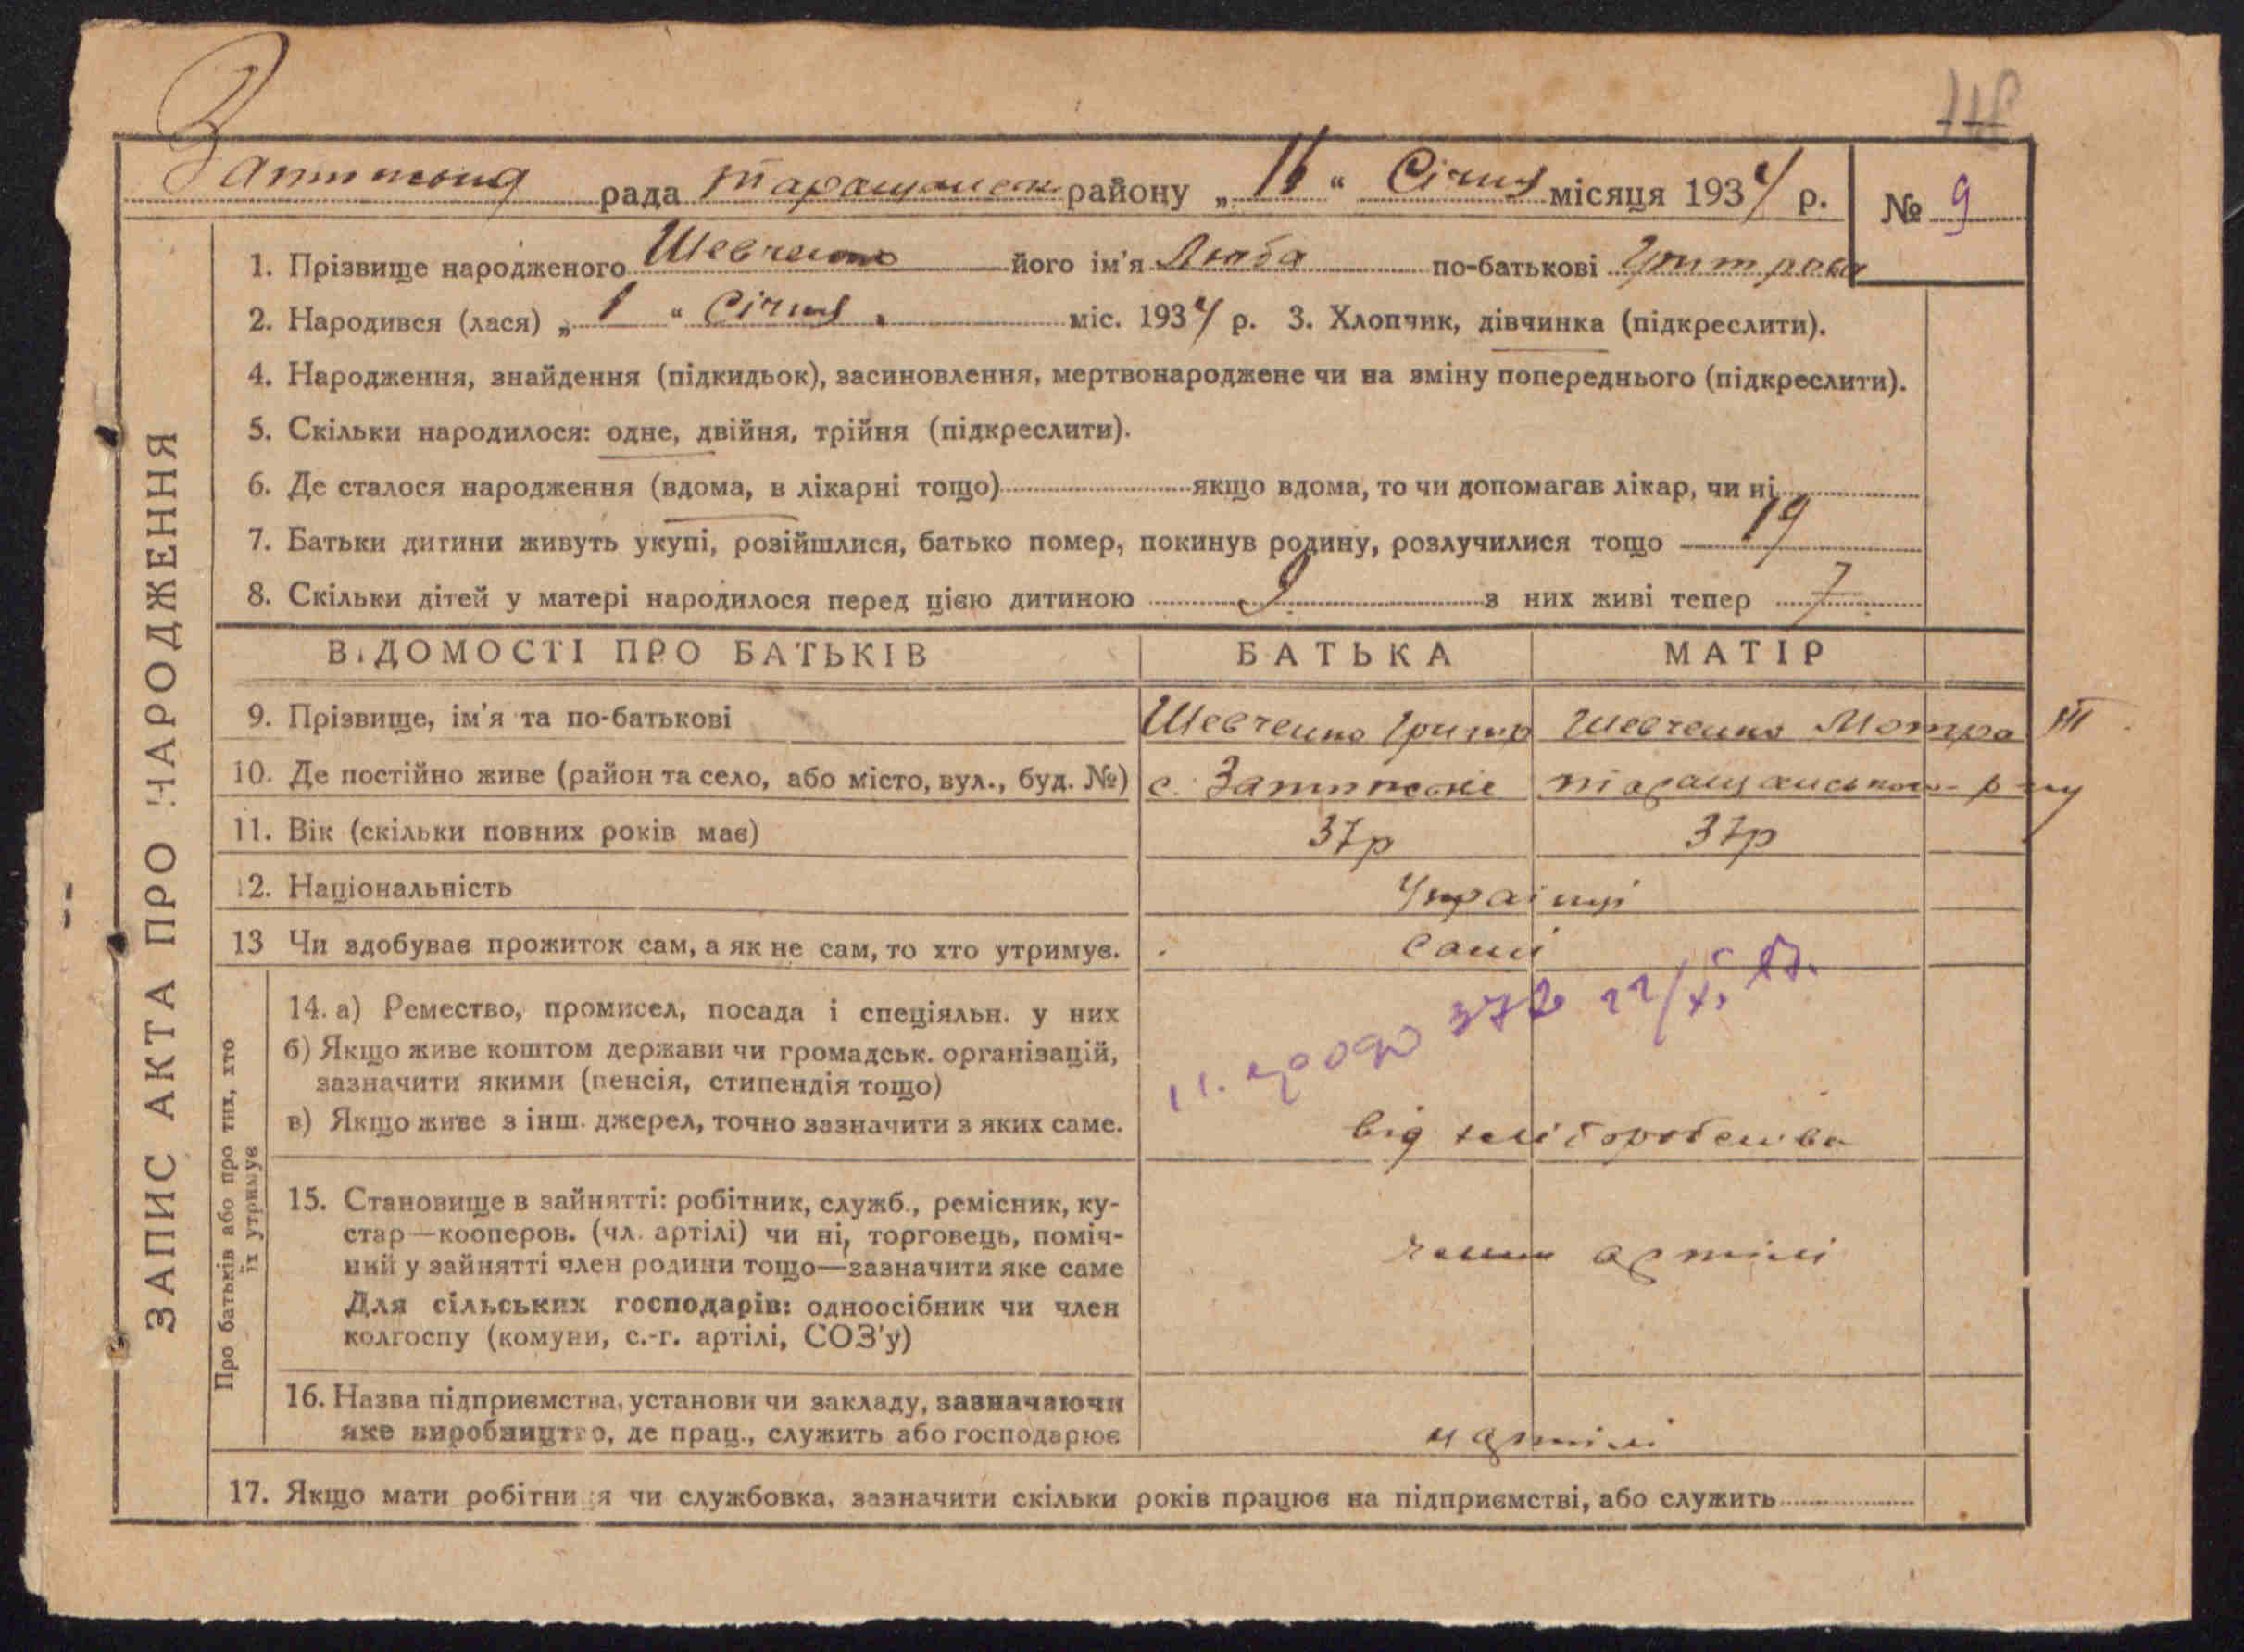 рада району „ 16 “ Січня місяця 1934 р. № 9
1. Прізвище народженого Шевченко його ім'я Люба по-батькові
2. Народився (лася) „ 1 “ Січня міс. 1934 р. 3. Хлопчик, дівчинка (підкреслити).
4. Народження, знайдення (підкидьок), засиновлення, мертвонароджене чи на зміну попереднього (підкреслити).
5. Скільки народилося: одне, двійня, трійня (підкреслити).
6. Де сталося народження (вдома, в лікарні тощо) якщо вдома, то чи допомагав лікар, чи ні
7. Батьки дитини живуть укупі, розійшлися, батько помер, покинув родину, розлучилися тощо 19
8. Скільки дітей у матері народилося перед цією дитиною 9 з них живі тепер 7
ВІДОМОСТІ ПРО БАТЬКІВ БАТЬКА МАТІР
9. Прізвище, ім'я та по-батькові Шевченко Шевченко Мотра
10. Де постійно живе (район та село, або місто, вул., буд. №) с.
11. Вік (скільки повних років має) 37р 37р
12. Національність Українці
13 Чи здобуває прожиток сам, а як не сам, то хто утримує. Самі
14. а) Ремество, промисел, посада і спеціяльн. у них
б) Якщо живе коштом держави чи громадськ. організацій,
зазначити якими (пенсія, стипендія тощо)
в) Якщо живе з інш. джерел, точно зазначити з яких саме. від
15. Становище в зайнятті: робітник, служб., ремісник, ку-
стар—кооперов. (чл. артілі) чи ні, торговець, поміч-
ний у зайнятті член родини тощо—зазначити яке саме члени артілі
Для сільських господарів: одноосібник чи член
колгоспу (комуни, с.-г. артілі, СОЗ'у)
16. Назва підприємства, установи чи закладу, зазначаючи
яке виробництво, де прац., служить або господарює в артілі
17. Якщо мати робітниця чи службовка, зазначити скільки років працює на підприємстві, або служить
ЗАПИС АКТА ПРО НАРОДЖЕННЯ
Про батьків або про тих, хто
їх утримує